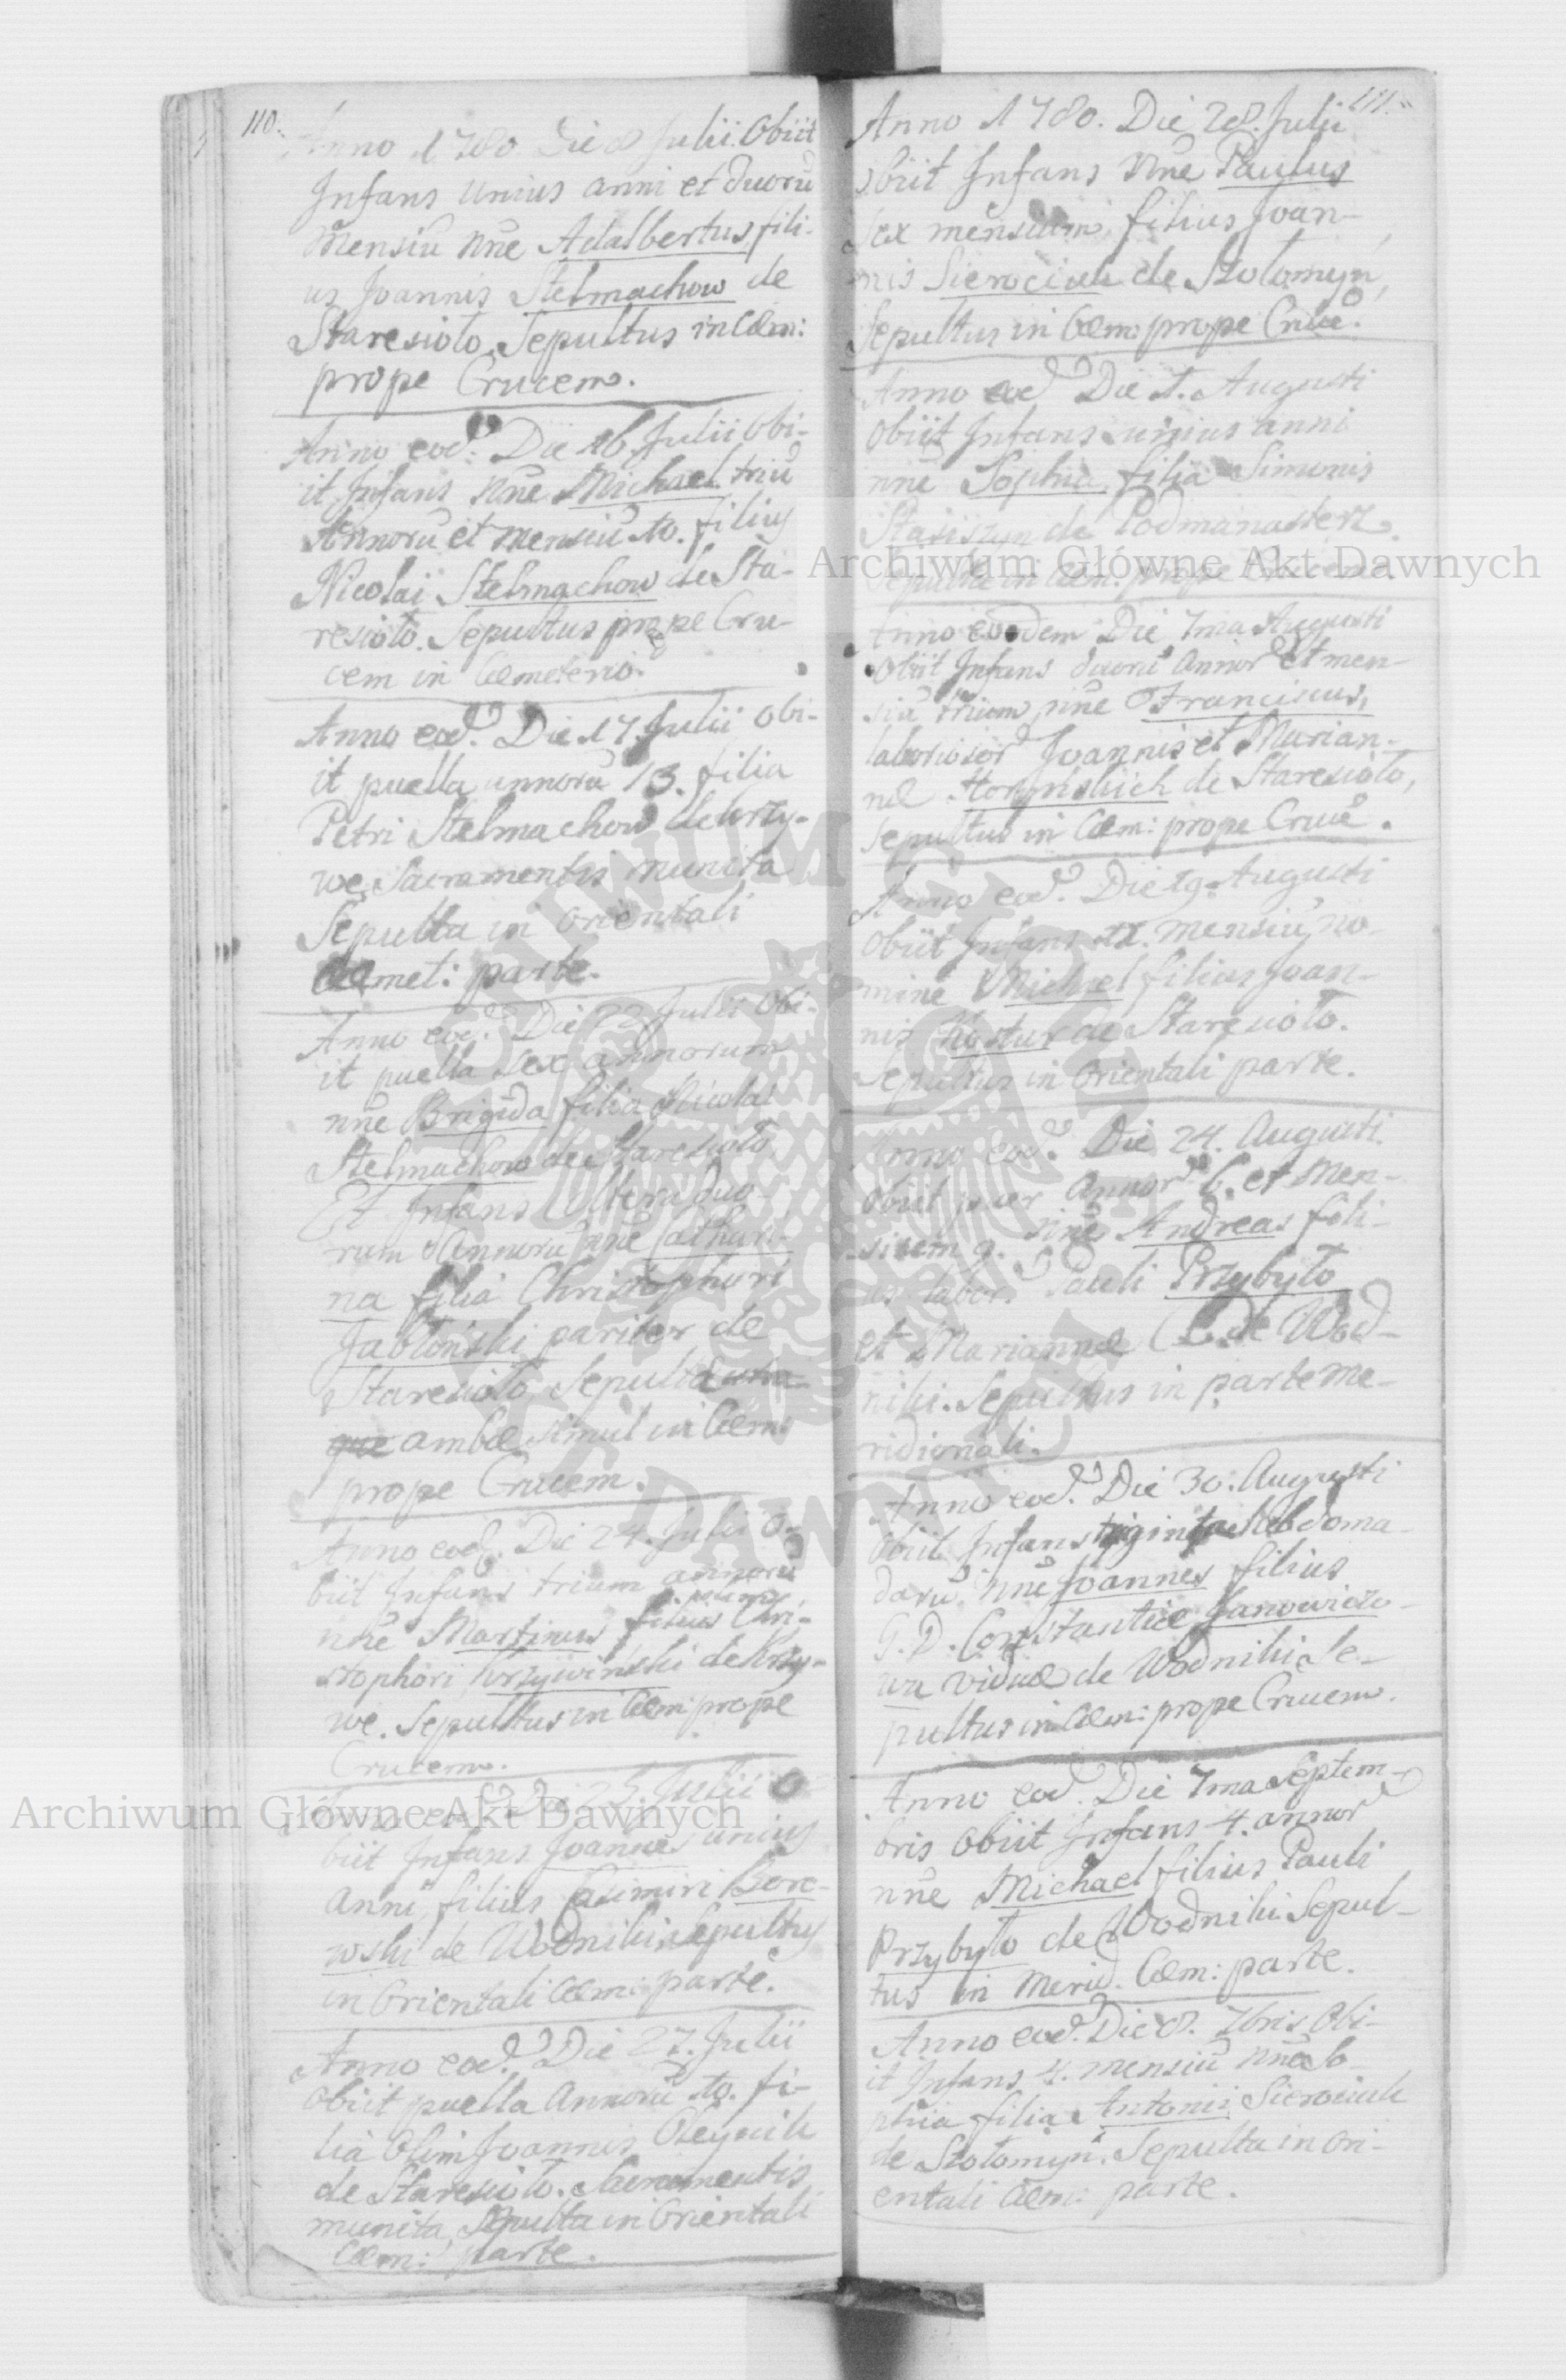 110.
Anno 1780 Die 8 Julii. Obiit
Infans unius anni et duorū
mensiū nñe Adalbertus fili-
us Joannis Stelmachow de
Staresioło, Sepultus in Cœm:
prope Crucem.
Anno eod. Die 16 Julii Obi-
it Infans nñe Michael triū
Annorū et mensiū 10. filius
Nicolai Stelmachow de Sta-
resioło. Sepultus prope Cru-
cem in Cœmeterio.
Anno eod. Die 17 Julii obi-
it puella annorū 13. filia
Petri Stelmachow de Krzy-
we, Sacramentis munita
Sepulta in orientali
Cœmet: parte.
Anno eod. Die 23 Julii Obi-
it puella sex annorum
nñe Brigida filia Nicolai
Stelmachow de Staresioło
Et Infans altera duo-
rum Annorū nñe Cathari-
na filia Christophori
Jabłoński pariter de
Staresioło, Sepultæ utra-
que ambæ simul in Cœm:
prope Crucem.
Anno eod. Die 24. Julii o-
biit Infans trium annorū
nñe Martinus filius Chri-
stophori Krzywiński de Krzy-
we. Sepultus in Cœm: prope
Crucem.
Anno eod. Die 25. Julii O-
biit Infans Joannes unius
anni, filius Casimiri Bore-
wski de Wodniki, Sepultus
in Orientali Cœm: parte.
Anno eod. Die 27. Julii
Obiit puella Annorū 10. fi-
lia Olim Joannis
de Staresioło. Sacramentis
munita, Sepulta in Orientali
Cœm: parte.
111.
Anno 1780. Die 28. Julii
obiit Infans nñe Paulus
Sex mensium, filius Joan-
nis Sierociuk de Stołomyn,
Sepultus in Cœm: prope Crucē.
Anno eod. Die 1. Augusti
Obiit Infans unius anni
nñe Sophia, filia Simonis
Stasiszyn de Podmanasterz.
Sepulta in Cœm: prope Crucem.
Anno eodem Die 7ma Augusti
Obiit Infans duorū annor et men-
siū trium nñe Franciscus,
laboriosor Joannis et Marian-
næ de Staresioło,
Sepultus in Cœm: prope Crucē.
Anno eod. Die 19. Augusti
Obiit Infans mensiū, no-
mine Michael filius Joan-
nis Kostur de Staresioło.
Sepultus in Orientali parte.
Anno eod. Die 24. Augusti
Obiit puer Annor 6. et Men-
sium 9. nñe Andreas fili-
us labor. Pauli Przybyło
et Mariannæ C. L. de Wod-
niki. Sepultus in parte me-
ridionali.
Anno eod. Die 30. Augusti
Obiit Infans triginta Hebdoma-
darū, nñe Joannes filius
G. D. Constantiæ Janowiczo-
wa viduæ de Wodniki Se-
pultus in Cœm: prope Crucem.
Anno eod. Die 7ma Septem-
bris Obiit Infans 4. annor
nñe Michael filius Pauli
Przybyło de Wodniki Sepul-
tus in Merid. Cœm: parte.
Anno eod. Die 8. 7bris Obi-
it Infans 4. mensiū nñe So-
phia filia Antonii Sierociuk
de Stołomyn. Sepulta in Ori-
entali Cœm: parte.
Archiwum Główne Akt Dawnych
Archiwum Główne Akt Dawnych